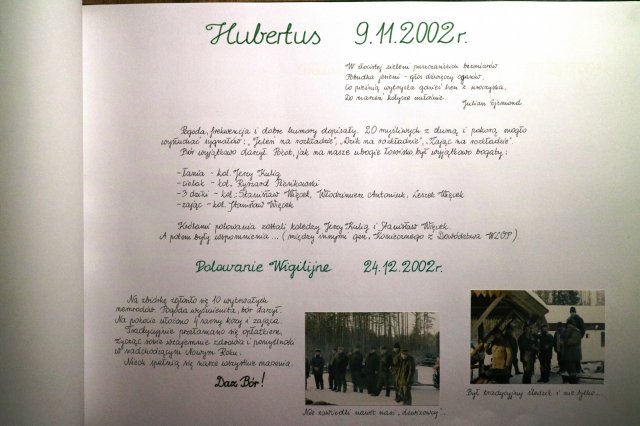 Hubertus 9.11.2002r.
W złocistej zieleni puszczańskich bezmiarów
Pobudka jesieni - głos dźwięczy ogarów,
Co pieśnią wytryska gdzieś hen z uroczyska,
Do marzeń kołysze miłośnie.
Julian Ejsmond
Pogoda, frekwencja i dobre humory dopisały. 20 myśliwych z dumą i pokorą mogło
wysłuchać sygnałów: „Jeleń na rozkładzie", „Dzik na rozkładzie", „Zając na rozkładzie".
Bór wyjątkowo darzył. Pokot, jak na nasze ubogie łowisko, był wyjątkowo bogaty:
-łania - kol. Jerzy Kulig
-cielak - kol. Ryszard
-3 dziki - kol. Stanisław Więcek, Włodzimierz Antoniuk, Leszek Więcek
-zając - kol. Stanisław Więcek
Królami polowania zostali koledzy Jerzy Kulig i Stanisław Więcek.
A potem były wspomnienia... (między innymi gen. Koniecznego z Dowództwa WLOP)
Polowanie Wigilijne 24.12.2002r.
Na zbiórkę zgłosiło się 10 wytrwałych
nemrodów. Pogoda wyśmienita, bór darzył.
Na pokocie ułożono 4 sarny kozy i zająca.
Tradycyjnie przełamano się opłatkiem,
życząc sobie wzajemnie zdrowia i pomyślności
w nadchodzącym Nowym Roku.
Niech spełnią się nasze wszystkie marzenia.
Darz Bór!
Nie zawiedli nawet nasi „dewizowcy".
Był tradycyjny śledzik i nie tylko...